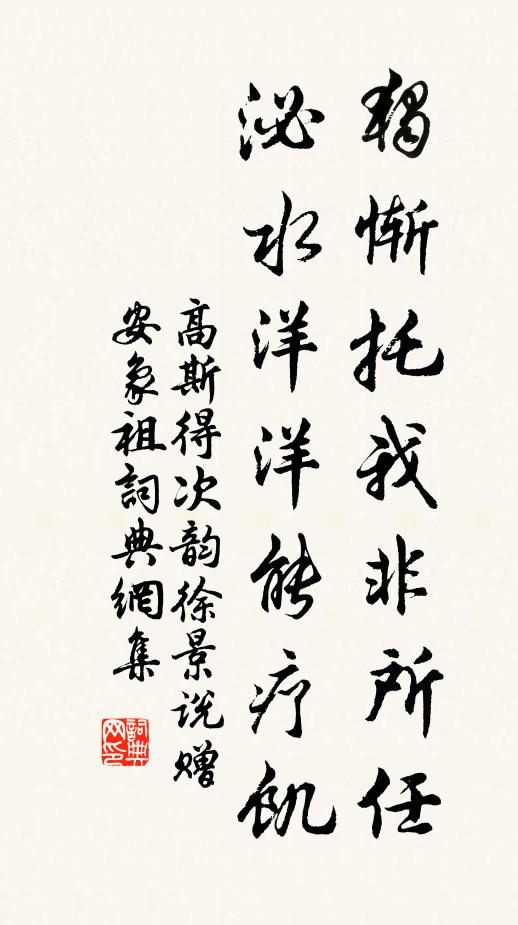 獨慚托我非所任
泌水洋洋能疗飢
高斯得次韵徐景说赠
安象祖詞典網集
詞典
网印